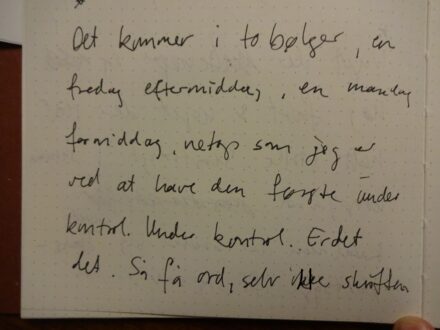 Det kommer i to bølger, en
fredag eftermiddag, en mandag
formiddag, netop som jeg er
ved at have den første under
kontrol. Under kontrol. Er det
det. Så få ord, selv ikke skriften